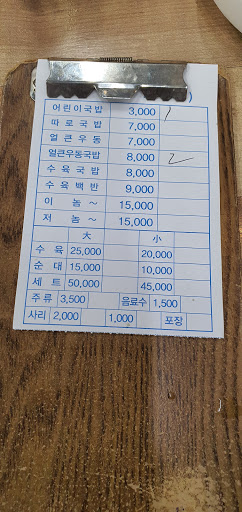 어린이국밥 3,000 1
따로국밥 7,000
얼큰우동 7,000
얼큰우동국밥 8,000 2
수육국밥 8,000
수육백반 9,000
이놈~ 15,000
저놈~ 15,000
大 小
수육 25,000 20,000
순대 15,000 10,000
세트 50,000 45,000
주류 3,500 음료수 1,500
사리 2,000 1,000 포장